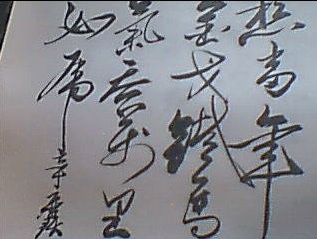 想當年
金戈鐵馬
氣吞萬里
如虎辛棄疾